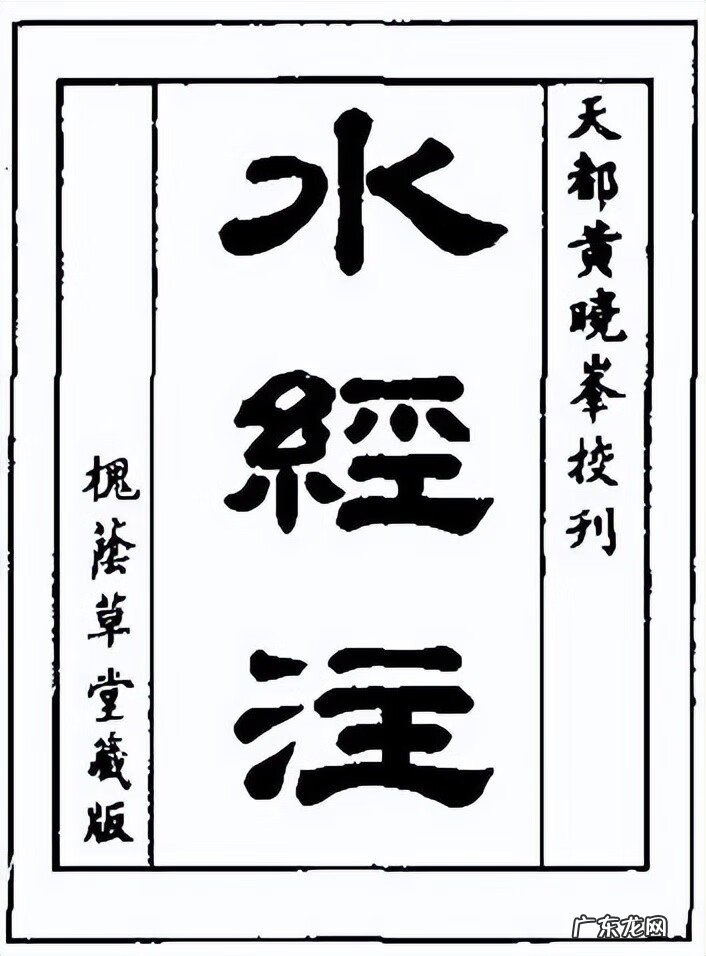 天都黄曉峯校刊
水經注
槐蔭草堂藏版
广东龙网